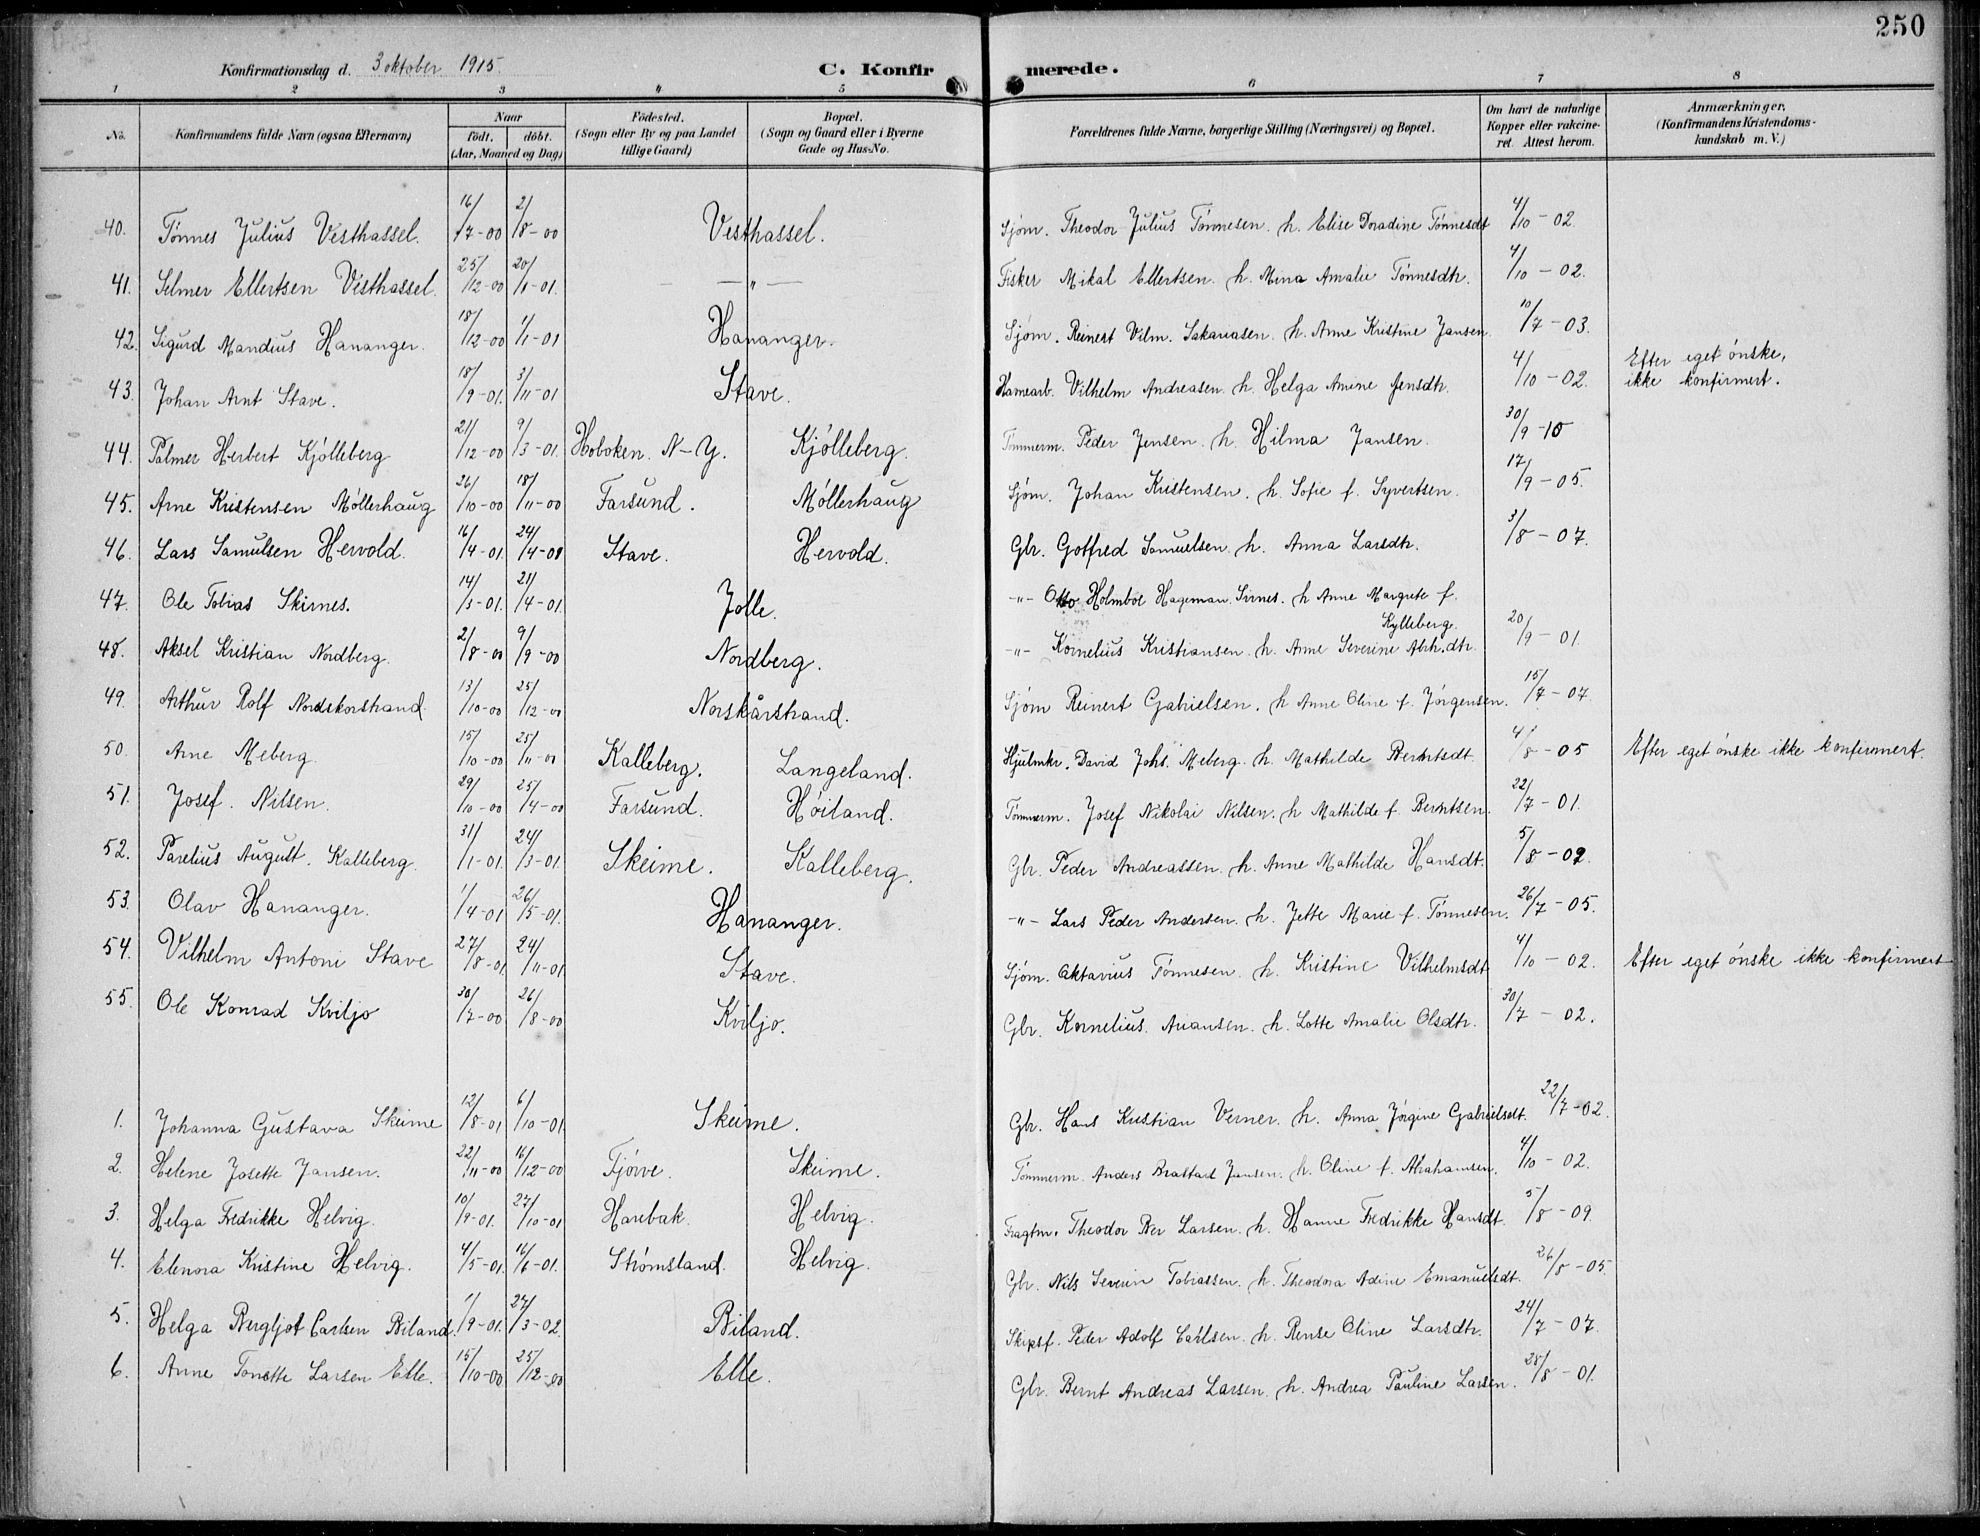 250
Konfirmationsdag d. 3 oktober 1915. C. Konfirmerede.
1 2 3 4 5 6 7 8
No. Konfirmandens fulde Navn (ogsaa Efternavn) Naar født. døbt. (Aar, Maaned og Dag) Fødested. (Sogn eller By og paa Landet tillige Gaard) Bopæl. (Sogn og Gaard eller i Byerne Gade og Hus-No. Forældrenes fulde Navne, borgerlige Stilling (Næringsvei) og Bopæl. Om havt de naturlige Kopper eller vakcineret. Attest herom. Anmærkninger. (Konfirmandens Kristendomskundskab m. V.)
40. Tönnes Julius Vesthassel. 16/7-00 2/8-00 Vesthassel. Sjøm. Theodor Julius Tønnesen. h. Elise Doradine Tønnesdt 4/10-02.
41. Selmer Ellertsen Vesthassel. 25/12-00 20/1-01. —"— Fisker Mikal Ellertsen. h. Mina Amalie Tønnesdtr. 4/10-02.
42. Sigurd Mandius Hananger. 18/12-00 1/1-01 Hananger. Sjøm. Reinert Vilm. Sakariasen. h. Anne Kristine Jansen. 10/7-03.
43. Johan Arnt Stave. 18/9-01. 3/11-01 Stave. Havnearb. Vilhelm Andreasen. h. Helga Amine Jensdtr. 4/10-02. Efter eget ønske, ikke konfirmert.
44. Palmer Herbert Kjölleberg 21/12-00 9/3-01. Hoboken. N-Y. Kjölleberg. Tømmerm. Peder Jensen. h. Hilma Jansen. 30/9-10
45. Arne Kristensen Möllerhaug 26/10-00 18/11-00 Farsund. Möllerhaug Sjøm. Johan Kristensen. h. Sofie f. Syvertsen. 17/9-05.
46. Lars Samulsen Hervold. 16/4-01. 24/4-01 Stave. Hervold. Gbr. Gotfred Samuelsen. h. Anna Larsdtr. 3/8-07.
47. Ole Tobias Skirnes. 14/3-01. 21/4-01. Jolle. -"- Otto Holmboe Hageman Sirnes. h Anne Margrete f. Kylleberg.
48. Aksel Kristian Nordberg. 2/8-00 9/9-00 Nordberg. -"- Kornelius Kristiansen. h. Anne Severine Abrh.dtr. 20/9-01.
49. Arthur Rolf Nordskorstrand 13/10-00 25/12-00 Norskårstrand. Sjøm Reinert Gabrielsen. h Anne Oline f. Jörgensen. 15/7-07.
50. Arne Meberg. 15/10-00 25/11-00 Kalleberg. Langeland. Hjulmkr. David Johs. Meberg. h. Mathilde Berntsdt. 4/8-05 Efter eget ønske ikke konfirmert.
51. Josef. Nilsen. 29/10-00 25/4-00 Farsund. Höiland. Tømmerm. Josef Nikolai Nilsen. h Mathilde f. Berntsen. 22/7-01.
52. Parelius August. Kalleberg 31/1-01. 24/3-01. Skeime. Kalleberg. Gbr. Peder Andreassen. h. Anne Mathilde Hansdt. 5/8-02.
53. Olav Hananger. 1/4-01 26/5-01. Hananger. -"- Lars Peder Andersen. h. Jette Marie f. Tønnesen. 26/7-05.
54. Vilhelm Antoni Stave 27/8-01. 24/11-01 Stave. Sjøm. Oktavius Tønnesen. h. Kristine Vilhelmsdt 4/10-02. Efter eget ønske ikke konfirmert
55. Ole Konrad Kviljo 30/7-00 26/8-00 Kviljo. Gbr. Kornelius. Ariansen. h. Lotte Amalie Olsdtr. 30/7-02.
1. Johanna Gustava Skeime 12/8-01 6/10-01. Skeime. Gbr. Hans Kristian Verner. h. Anna Jörgine Gabrielsdt. 22/7-02.
2. Helene Josette Jansen. 22/11-00 16/12-00 Fjörve. Skeime. Tømmerm. Anders Brastad Jansen. h. Oline f. Abrahamsen. 4/10-02.
3. Helga Fredrikke Helvig. 10/9-01. 27/10-01 Harebak. Helvig. Fragtm. Theodor Ber Larsen. h. Hanne Fredrikke Hansdt. 5/8-09.
4. Elenora Kristine Helvig. 4/5-01. 16/6-01. Strömsland. Helvig. Gbr. Nils Severin Tobiassen. h. Theodora Adine Emanuelsdt. 26/8-05.
5. Helga Bergljot Carlsen Biland. 1/9-01. 27/3-02. Biland. Skipsf. Peder Adolf Carlsen. h. Rense Oline Larsdtr. 24/7-07.
6. Anne Tonette Larsen Elle. 15/10-00 25/12-00 Elle. Gbr. Bernt Andreas Larsen. h. Andrea Pauline Larsen. 28/8-01.